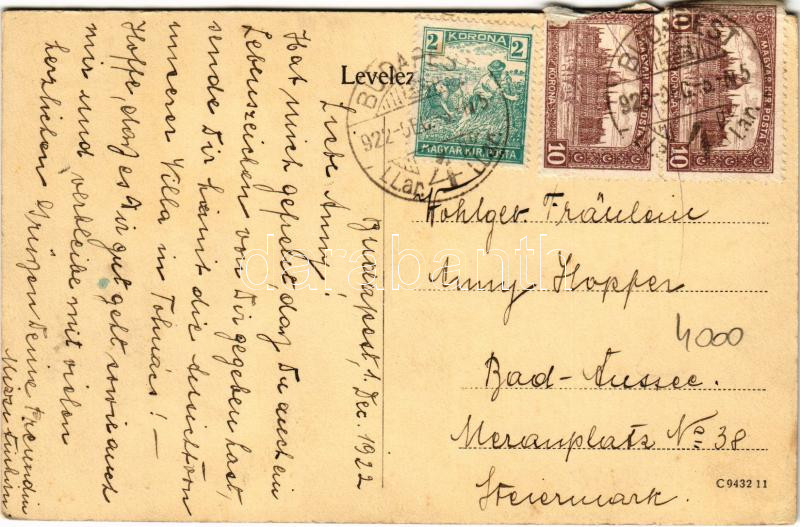 Levelez
2 KORONA 2
MAGYAR KIR. POSTA
10 KORONA 10
MAGYAR KIR. POSTA
BUDAPEST
922
BUDAPEST
922
Budapest, 1. Dec. 1922
Liebe Anny!
Hat mich gefreut daß Du auch ein
Lebenszeichen von Dir gegeben hast,
sende Dir hiemit die Ansicht von
unserer Villa in Tolmács! —
Hoffe, daß es Dir gut geht, sowie auch
mir und verbleibe mit vielen
herzlichen Grüßen Deine Freundin
Wohlgeb Fräulein
Anny Hopfer
Bad-Aussee.
Meranplatz No 38
Steiermark.
4000
C 9432 11
darabanth